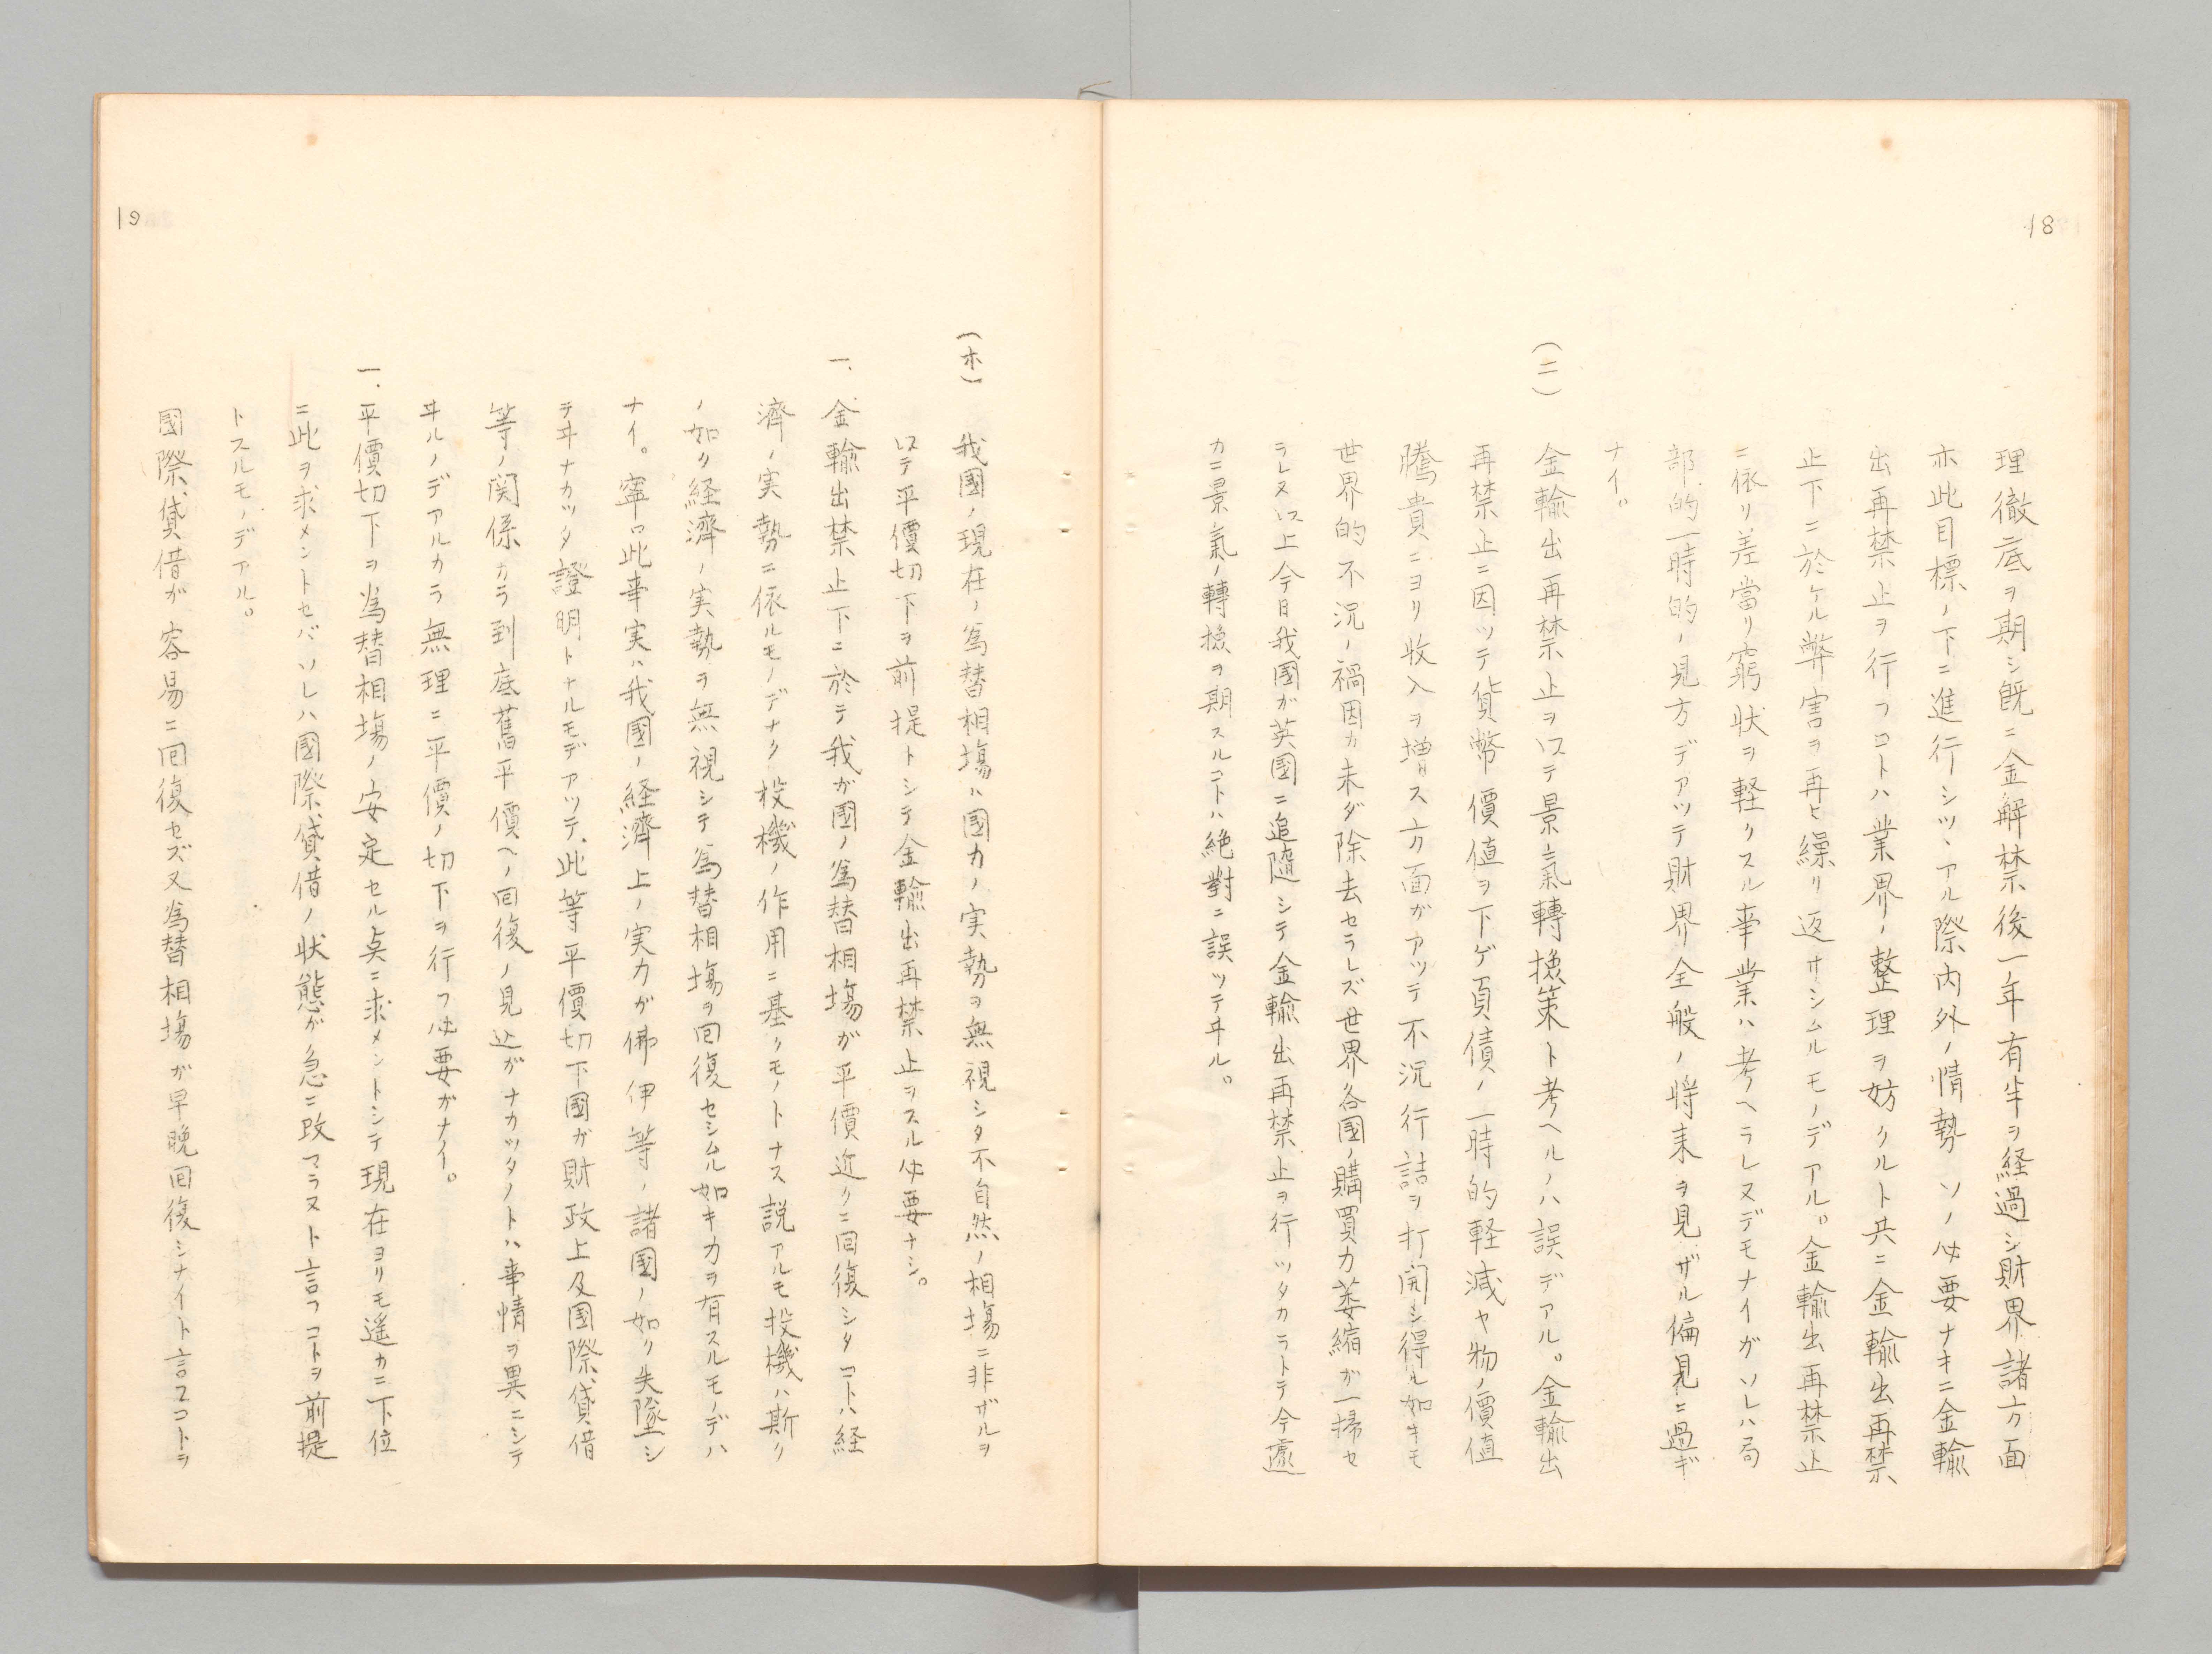 18
理徹底ヲ期シ既ニ金解禁後一年有半ヲ経過シ財界諸方面
亦此目標ノ下ニ進行シツヽアル際内外ノ情勢ソノ必要ナキニ金輸
出再禁止ヲ行フコトハ業界ノ整理ヲ妨クルト共ニ金輸出再禁
止下ニ於ケル弊害ヲ再ヒ繰リ返サシムルモノデアル。金輸出再禁止
ニ依リ差當リ窮状ヲ軽クスル事業ハ考ヘラレヌデモナイガソレハ局
部的一時的ノ見方デアツテ財界全般ノ将来ヲ見ザル偏見ニ過ギ
ナイ。
(ニ)
金輸出再禁止ヲ以テ景氣轉換策ト考ヘルノハ誤デアル。金輸出
再禁止ニ因ツテ貨幣價値ヲ下ゲ負債ノ一時的軽減ヤ物ノ價値
騰貴ニヨリ収入ヲ増ス方面ガアツテ不況行詰ヲ打開シ得ル如キモ
世界的不況ノ禍因カ未ダ除去セラレズ世界各國ノ購買力萎縮ガ一掃セ
ラレヌ以上今日我國ガ英國ニ追隨シテ金輸出再禁止ヲ行ツタカラトテ今遽
カニ景氣ノ轉換ヲ期スルコトハ絶對ニ誤ツテヰル。
19
(ホ) 我國ノ現在ノ為替相場ハ國力ノ実勢ヲ無視シタ不自然ノ相場ニ非ザルヲ
以テ平價切下ヲ前提トシテ金輸出再禁止ヲスル必要ナシ。
一、金輸出禁止下ニ於テ我が國ノ為替相場が平價近クニ回復シタコトハ経
濟ノ実勢ニ依ルモノデナク投機ノ作用ニ基クモノトナス説アルモ投機ハ斯ク
ノ如ク経濟ノ実勢ヲ無視シテ為替相場ヲ回復セシムル如キ力ヲ有スルモノデハ
ナイ。寧ロ此事実ハ我國ノ経濟上ノ実力が佛伊等ノ諸國ノ如ク失墜シ
テヰナカツタ證明トナルモデアツテ、此等平價切下國ガ財政上及國際貸借
等ノ関係カラ到底舊平價ヘノ回復ノ見込がナカツタノトハ事情ヲ異ニシテ
ヰルノデアルカラ無理ニ平價ノ切下ヲ行フ必要がナイ。
一、平價切下ヲ為替相場ノ安定セル点ニ求メントシテ現在ヨリモ遙カニ下位
ニ此ヲ求メントセバソレハ國際貸借ノ状態が急ニ改マラヌト言フコトヲ前提
トスルモノデアル。
國際貸借が容易ニ回復セズ又為替相場が早晩回復シナイト言フコトヲ